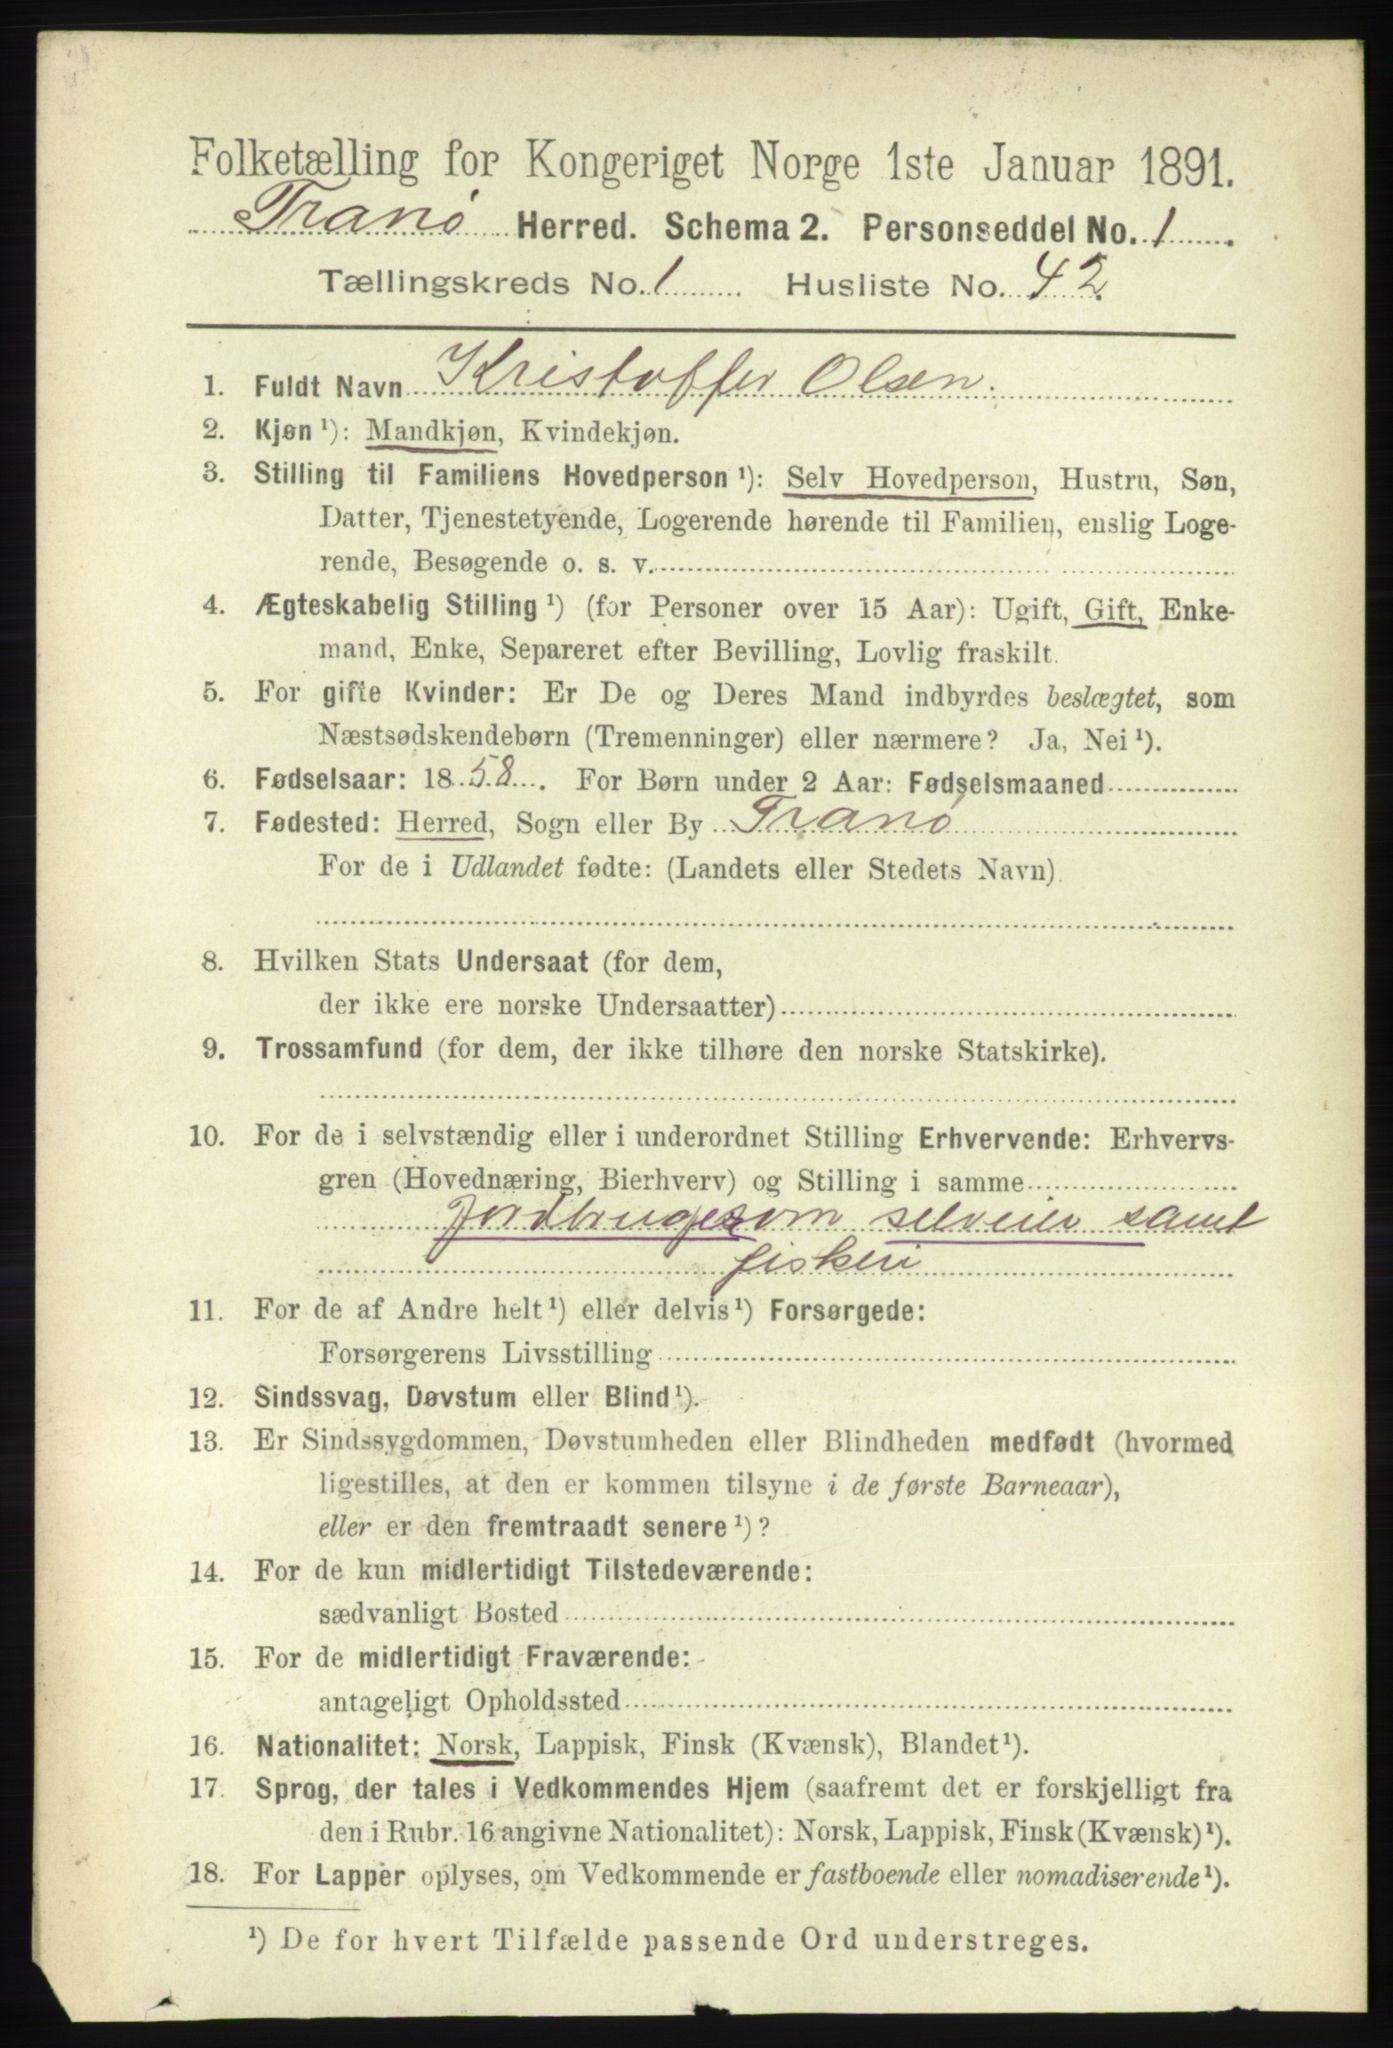 Folketælling for Kongeriget Norge 1ste Januar 1891.
Tranø Herred. Schema 2. Personseddel No. 1
Tællingskreds No. 1 Husliste No. 42.
1. Fuldt Navn Kristoffer Olsen.
2. Kjøn ¹): Mandkjøn, Kvindekjøn.
3. Stilling til Familiens Hovedperson ¹): Selv Hovedperson, Hustru, Søn,
Datter, Tjenestetyende, Logerende hørende til Familien, enslig Loge-
rende, Besøgende o. s. v.
4. Ægteskabelig Stilling ¹) (for Personer over 15 Aar): Ugift, Gift, Enke-
mand, Enke, Separeret efter Bevilling, Lovlig fraskilt.
5. For gifte Kvinder: Er De og Deres Mand indbyrdes beslægtet, som
Næstsødskendebørn (Tremenninger) eller nærmere? Ja, Nei ¹).
6. Fødselsaar: 1858. For Børn under 2 Aar: Fødselsmaaned
7. Fødested: Herred, Sogn eller By Tranø
For de i Udlandet fødte: (Landets eller Stedets Navn)
8. Hvilken Stats Undersaat (for dem,
der ikke ere norske Undersaatter)
9. Trossamfund (for dem, der ikke tilhøre den norske Statskirke).
10. For de i selvstændig eller i underordnet Stilling Erhvervende: Erhvervs-
gren (Hovednæring, Bierhverv) og Stilling i samme
Jordbruger som selveier samt
fiskeri
11. For de af Andre helt ¹) eller delvis ¹) Forsørgede:
Forsørgerens Livsstilling
12. Sindssvag, Døvstum eller Blind ¹).
13. Er Sindssygdommen, Døvstumheden eller Blindheden medfødt (hvormed
ligestilles, at den er kommen tilsyne i de første Barneaar),
eller er den fremtraadt senere ¹)?
14. For de kun midlertidigt Tilstedeværende:
sædvanligt Bosted
15. For de midlertidigt Fraværende:
antageligt Opholdssted
16. Nationalitet: Norsk, Lappisk, Finsk (Kvænsk), Blandet ¹).
17. Sprog, der tales i Vedkommendes Hjem (saafremt det er forskjelligt fra
den i Rubr. 16 angivne Nationalitet): Norsk, Lappisk, Finsk (Kvænsk) ¹).
18. For Lapper oplyses, om Vedkommende er fastboende eller nomadiserende ¹).
¹) De for hvert Tilfælde passende Ord understreges.